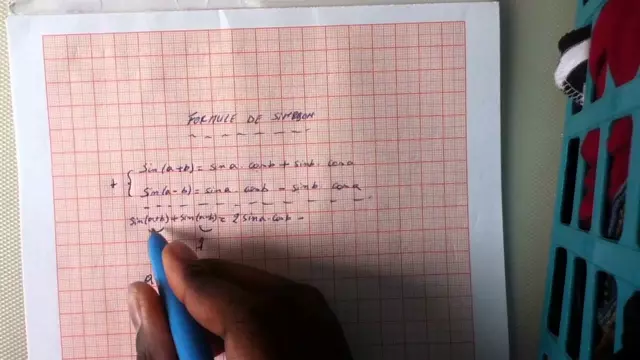 FORMULE DE SIMPSON
+ { sin(a+b) = sina cosb + sinb cosa
sin(a-b) = sina cosb - sinb cosa
sin(a+b) + sin(a-b) = 2 sina·cosb -